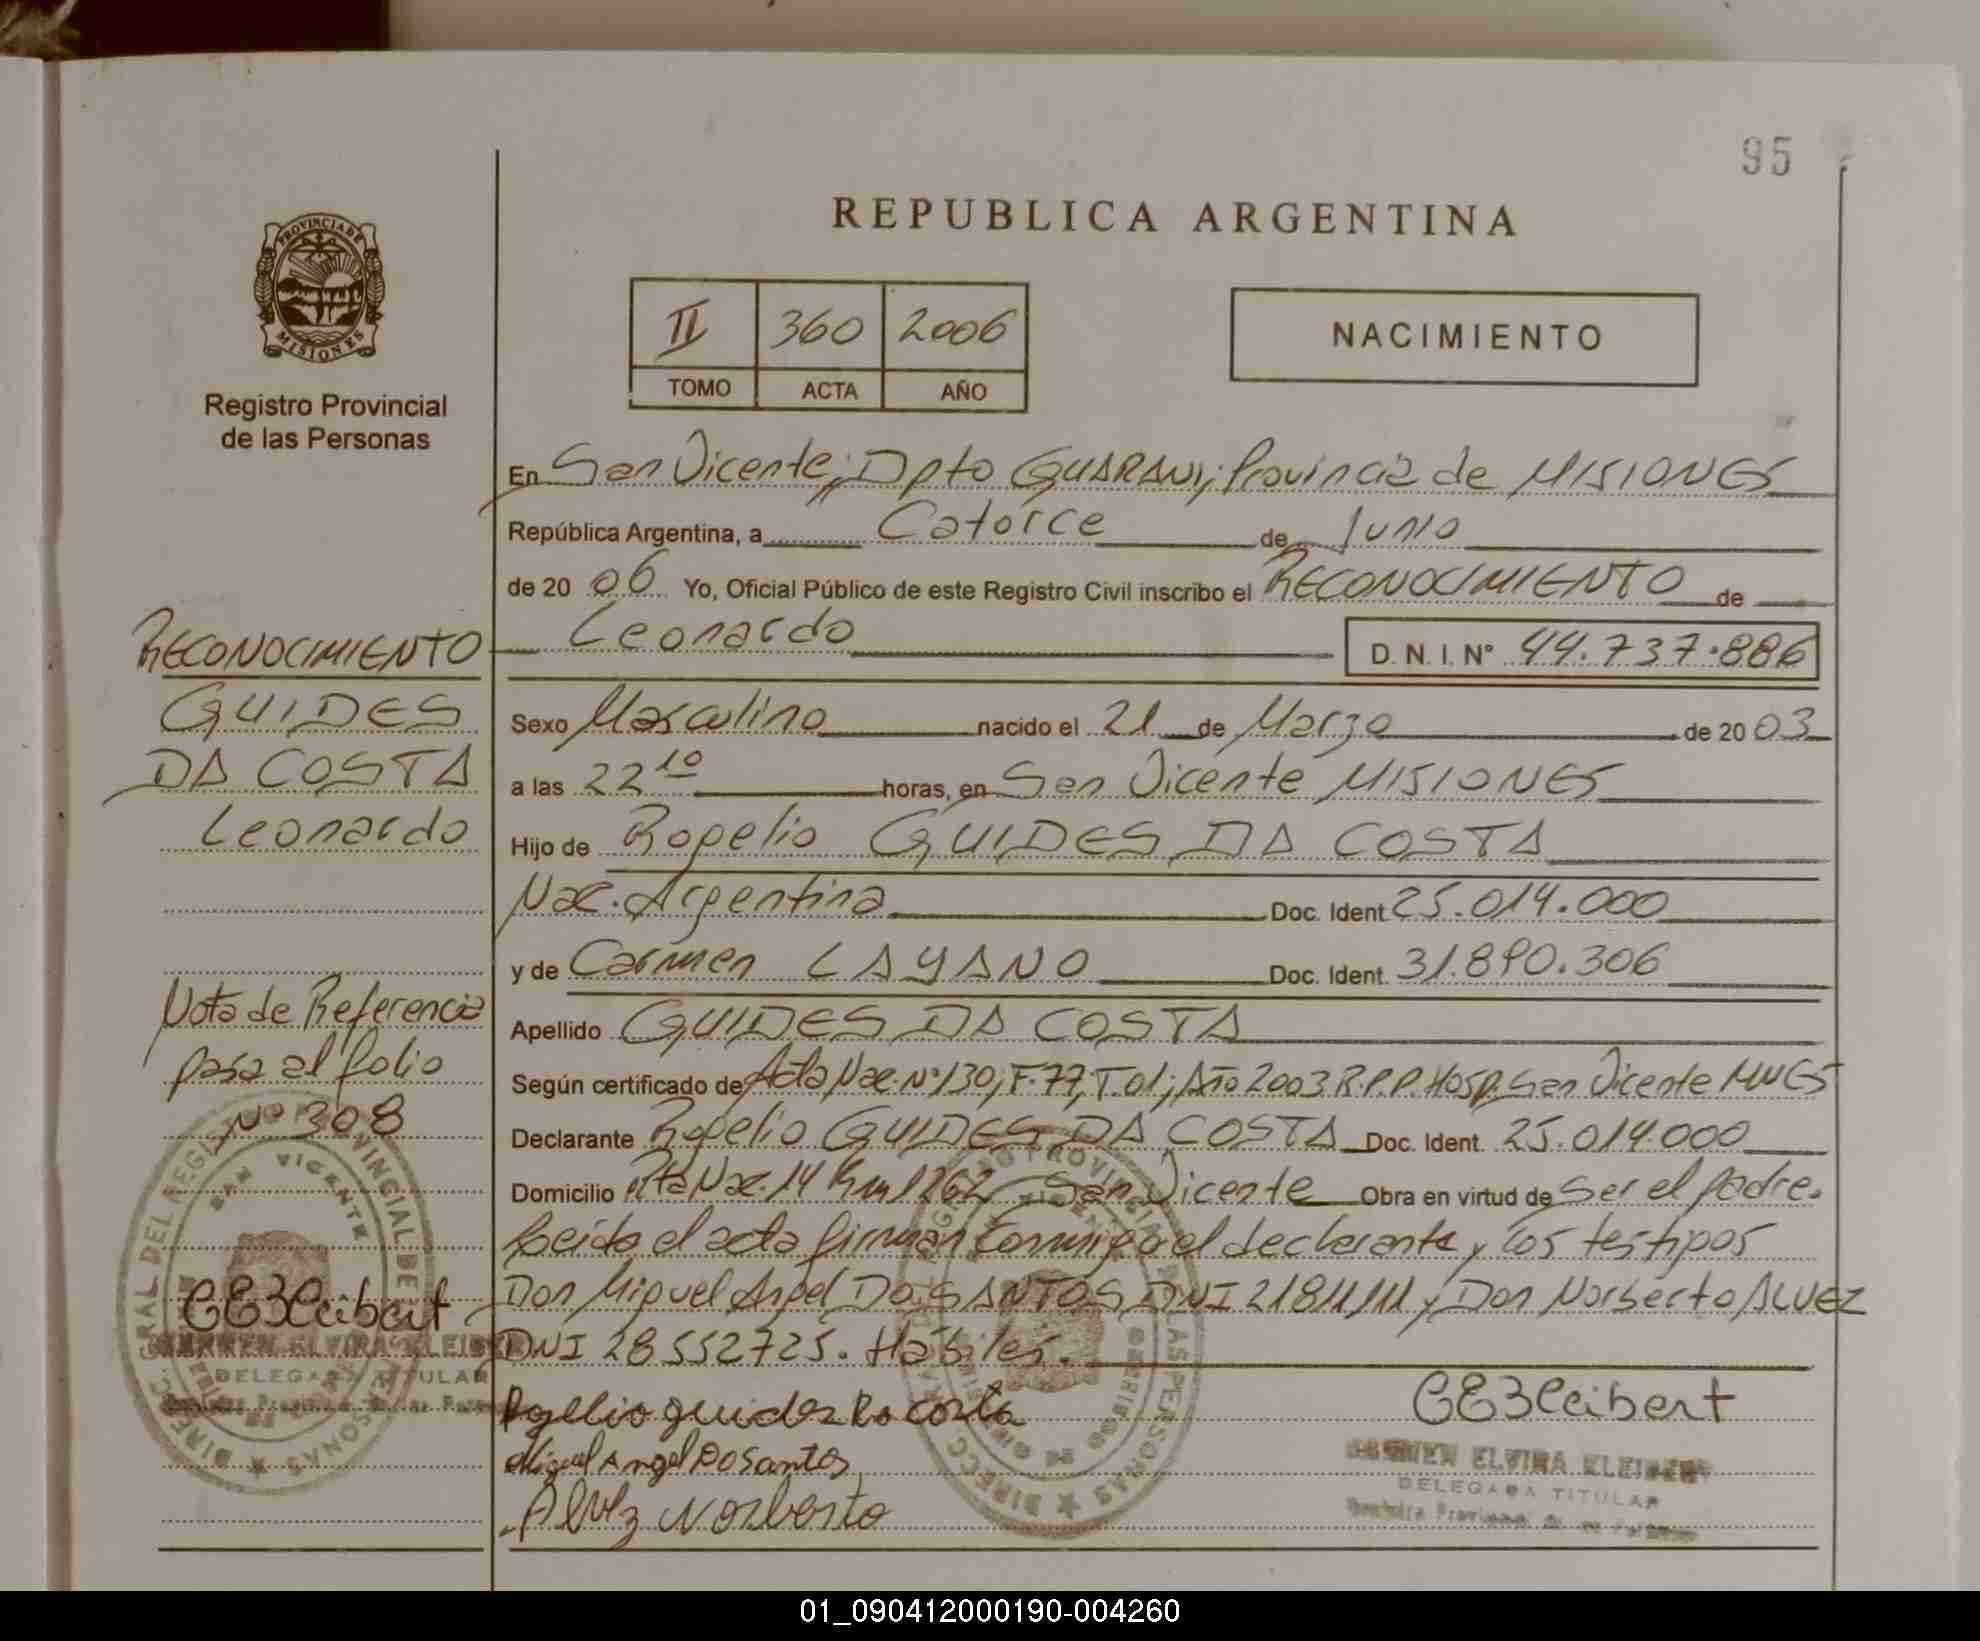 95
REPUBLICA ARGENTINA
PROVINCIA DE
MISIONES
Registro Provincial
de las Personas
II 360 2006
TOMO ACTA AÑO
NACIMIENTO
En San Vicente, Dpto GUARANI, Provincia de MISIONES
República Argentina, a Catorce de Junio
de 20 06 Yo, Oficial Público de este Registro Civil inscribo el RECONOCIMIENTO de
Leonardo D. N. I. Nº 44.737.886
Sexo Masculino nacido el 21 de Marzo de 20 03
a las 22 10 horas, en San Vicente MISIONES
Hijo de Rogelio GUIDES DA COSTA
Nac. Argentina Doc. Ident. 25.014.000
y de Carmen LAYANO Doc. Ident. 31.890.306
Apellido GUIDES DA COSTA
Según certificado de Acta Nac. Nº 130; F. 77, T. 01; Año 2003 R.P.P. Hosp. San Vicente MNES
Declarante Rogelio GUIDES DA COSTA Doc. Ident. 25.014.000
Domicilio Rta Nac. 14 Km 1262 San Vicente Obra en virtud de Ser el padre.
Leída el acta firman conmigo el declarante y los testigos
Don Miguel Angel DO SANTOS DNI 21811111 y Don Norberto ALVEZ
DNI 28552725. Hábiles.
Rogelio guides Da costa
Miguel Angel Do Santos
Alvez Norberto
CEKleibert
CARMEN ELVIRA KLEIBERT
DELEGADA TITULAR
RECONOCIMIENTO
GUIDES
DA COSTA
Leonardo
Nota de Referencia
pasa al folio
Nº 308
CEKleibert
CARMEN ELVIRA KLEIBERT
DELEGADA TITULAR
SAN VICENTE
01_090412000190-004260